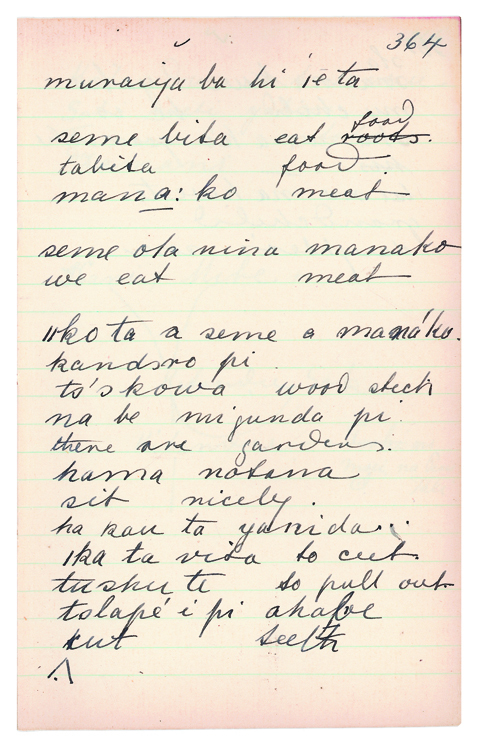 364
murasija ba hi ie ta
seme bita eat roots. food
tabita food.
mana: ko meat
seme ota nina manako
we eat meat
"ko ta a seme a manáko.
kandsro pi
to's kowa wood stick
na be migunda pi
there are gardens.
hama notana
sit nicely.
ha kau ta yanida..
ika ta vita to cut.
tusku ti to pull out
tslapé i pi ahabe
cut teeth